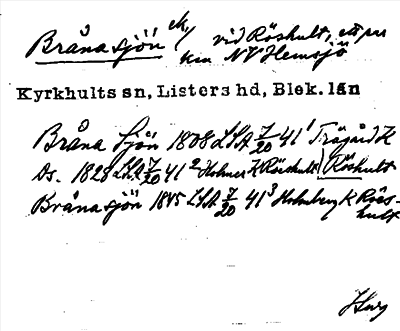 Brånasjön vid Röshult, ett par
km NV Hemsjö
Kyrkhults sn, Listers hd, Blek. län
Bråna Sjön 1808 LSA 7/20 41¹ Trägård K
Ds. 1828 LSA 7/20 41² Holmer K Röshult Röshult
Brånasjön 1845 LSA 7/20 41³ Holmberg K Rös-
hult